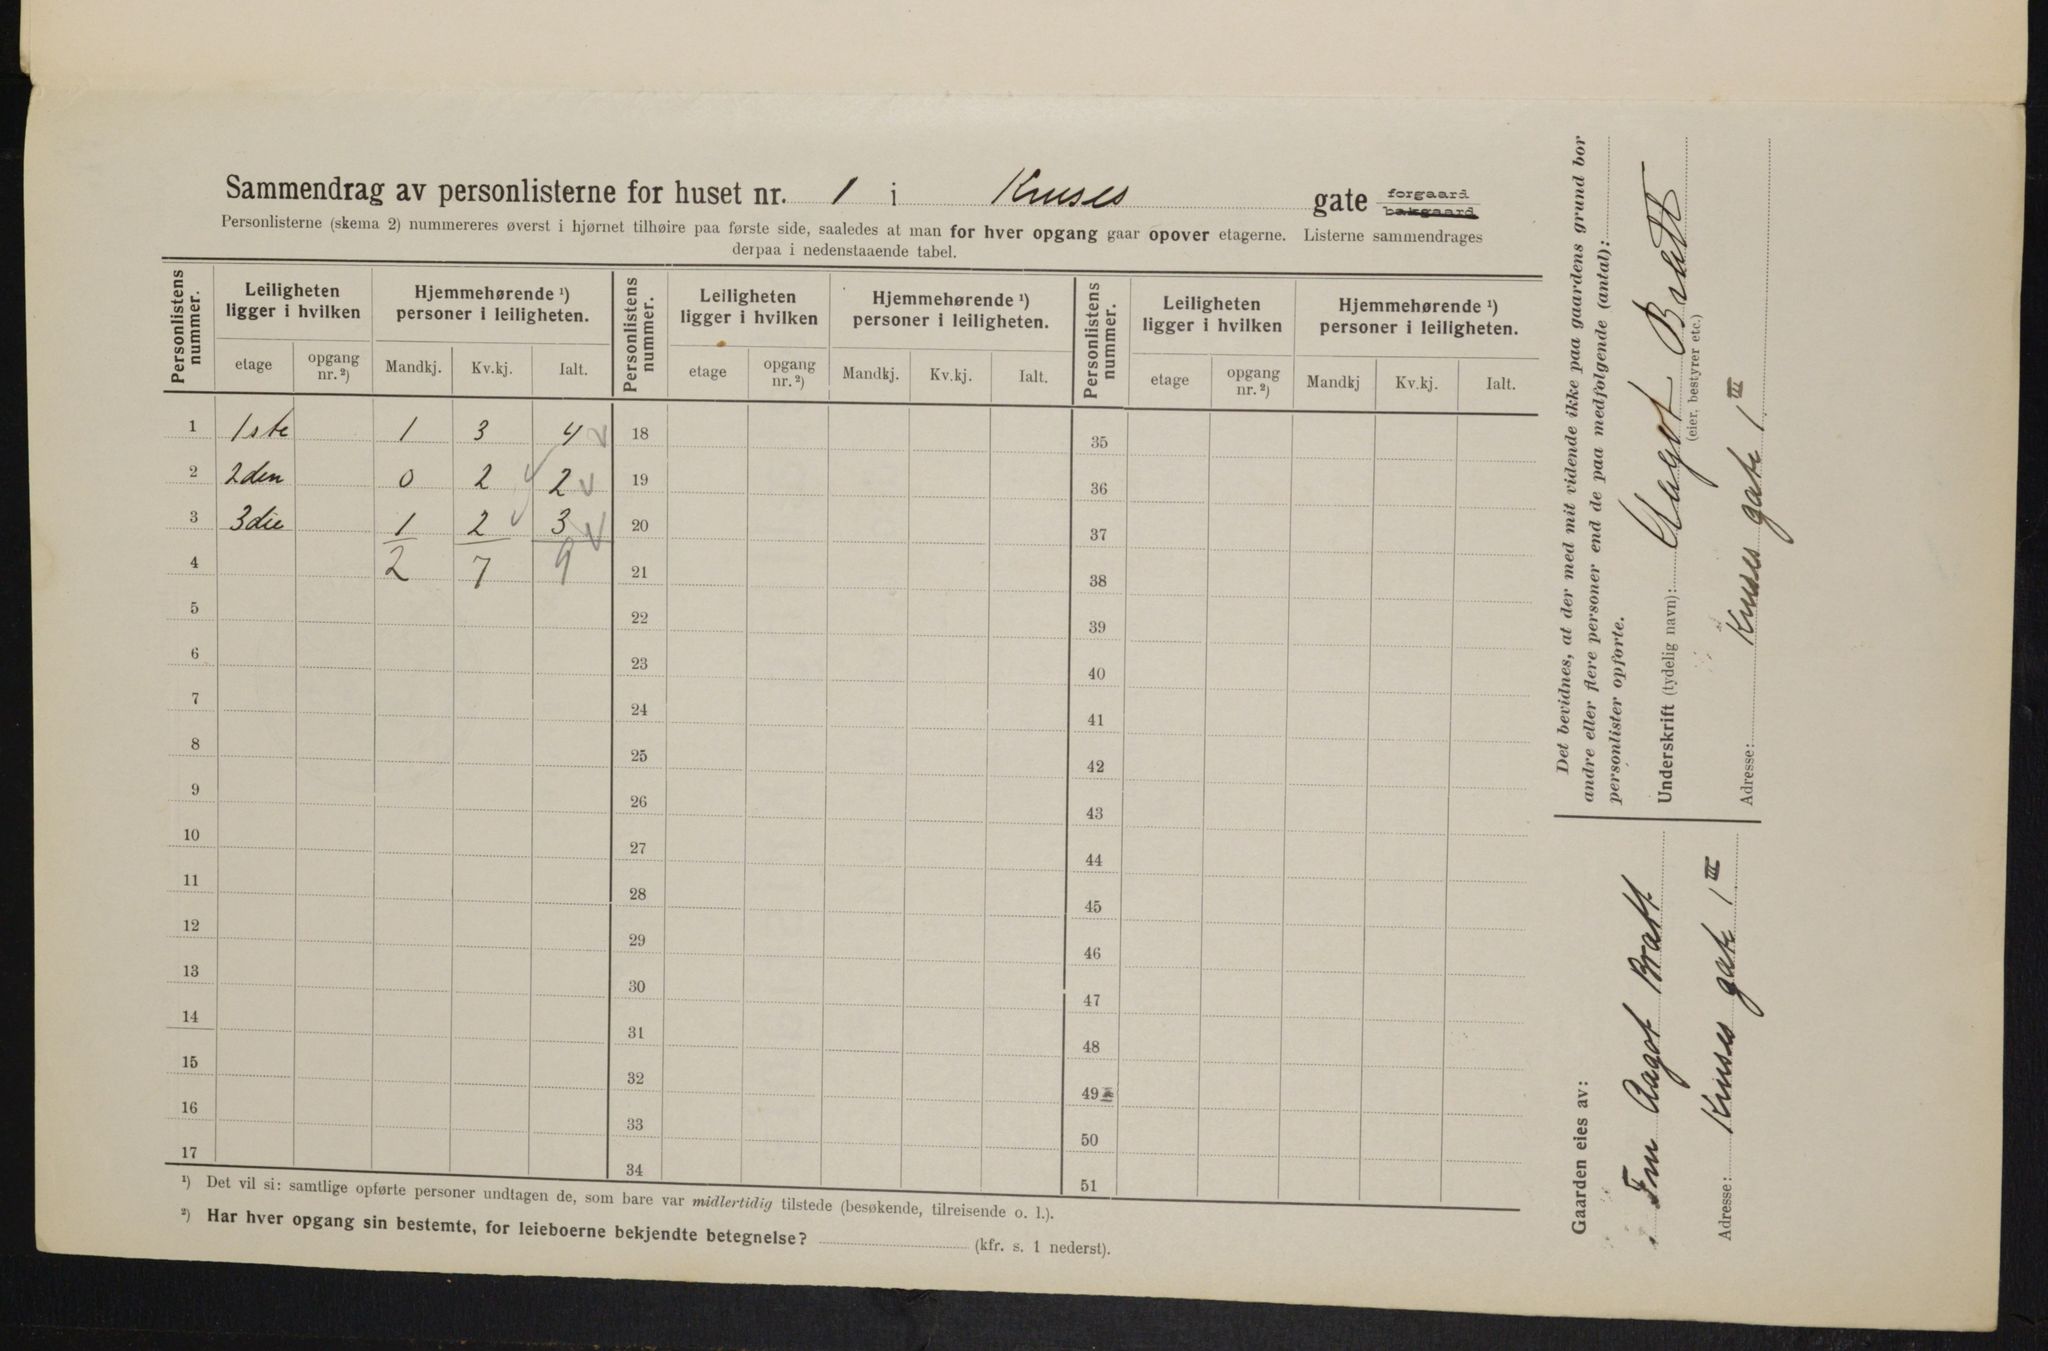 Sammendrag av personlisterne for huset nr. 1 i Kruses gate forgaard bakgaard
Personlisterne (skema 2) nummereres øverst i hjørnet tilhøire paa første side, saaledes at man for hver opgang gaar opover etagerne. Listerne sammendrages
derpaa i nedenstaaende tabel.
Personlistens nummer. Leiligheten ligger i hvilken Hjemmehørende ¹) personer i leiligheten. Personlistens nummer. Leiligheten ligger i hvilken Hjemmehørende ¹) personer i leiligheten. Personlistens nummer. Leiligheten ligger i hvilken Hjemmehørende ¹) personer i leiligheten.
etage opgang nr. ²) Mandkj. Kv.kj. Ialt. etage opgang nr. ²) Mandkj. Kv.kj. Ialt. etage opgang nr. ²) Mandkj Kv.kj. Ialt.
1 1ste 1 3 4 18 35
2 2den 0 2 2 19 36
3 3die 1 2 3 20 37
4 2 7 9 21 38
5 22 39
6 23 40
7 24 41
8 25 42
9 26 43
10 27 44
11 28 45
12 29 46
13 30 47
14 31 48
15 32 49
16 33 50
17 34 51
¹) Det vil si: samtlige opførte personer undtagen de, som bare var midlertidig tilstede (besøkende, tilreisende o. l.).
²) Har hver opgang sin bestemte, for leieboerne bekjendte betegnelse? (kfr. s. 1 nederst).
Det bevidnes, at der med mit vidende ikke paa gaardens grund bor
andre eller flere personer end de paa medfølgende (antal):
personlister opførte.
Underskrift (tydelig navn): Aagot Bratt
(eier, bestyrer etc.)
Adresse: Kruses gate 1 III
Gaarden eies av:
Fru Aagot Bratt
Adresse: Kruses gate 1 III